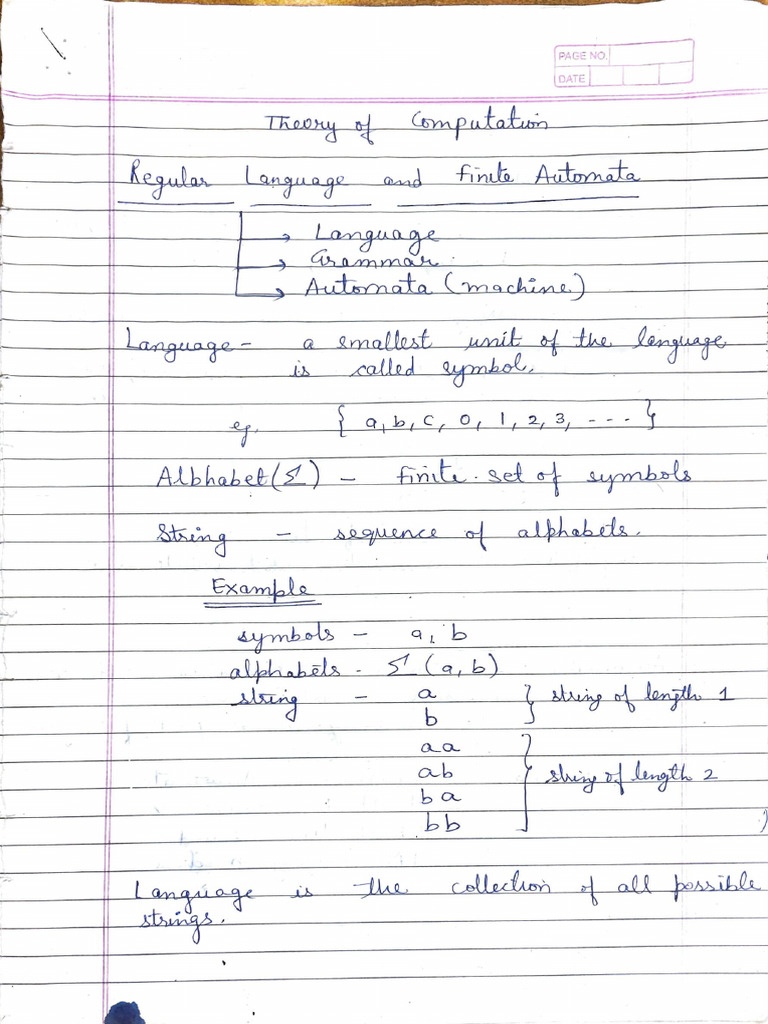 PAGE NO.
DATE
Theory of Computation
Regular Language and Finite Automata
→ Language
→ Grammar.
→ Automata (machine)
Language - a smallest unit of the language
is called symbol.
eg. { a, b, c, 0, 1, 2, 3, - - - - }
Albhabet (Σ) - finite set of symbols
String - sequence of alphabets.
Example
symbols - a, b
alphabets - Σ (a, b)
string - a } string of length 1
b
aa
ab } string of length 2
ba
bb
Language is the collection of all possible
strings.